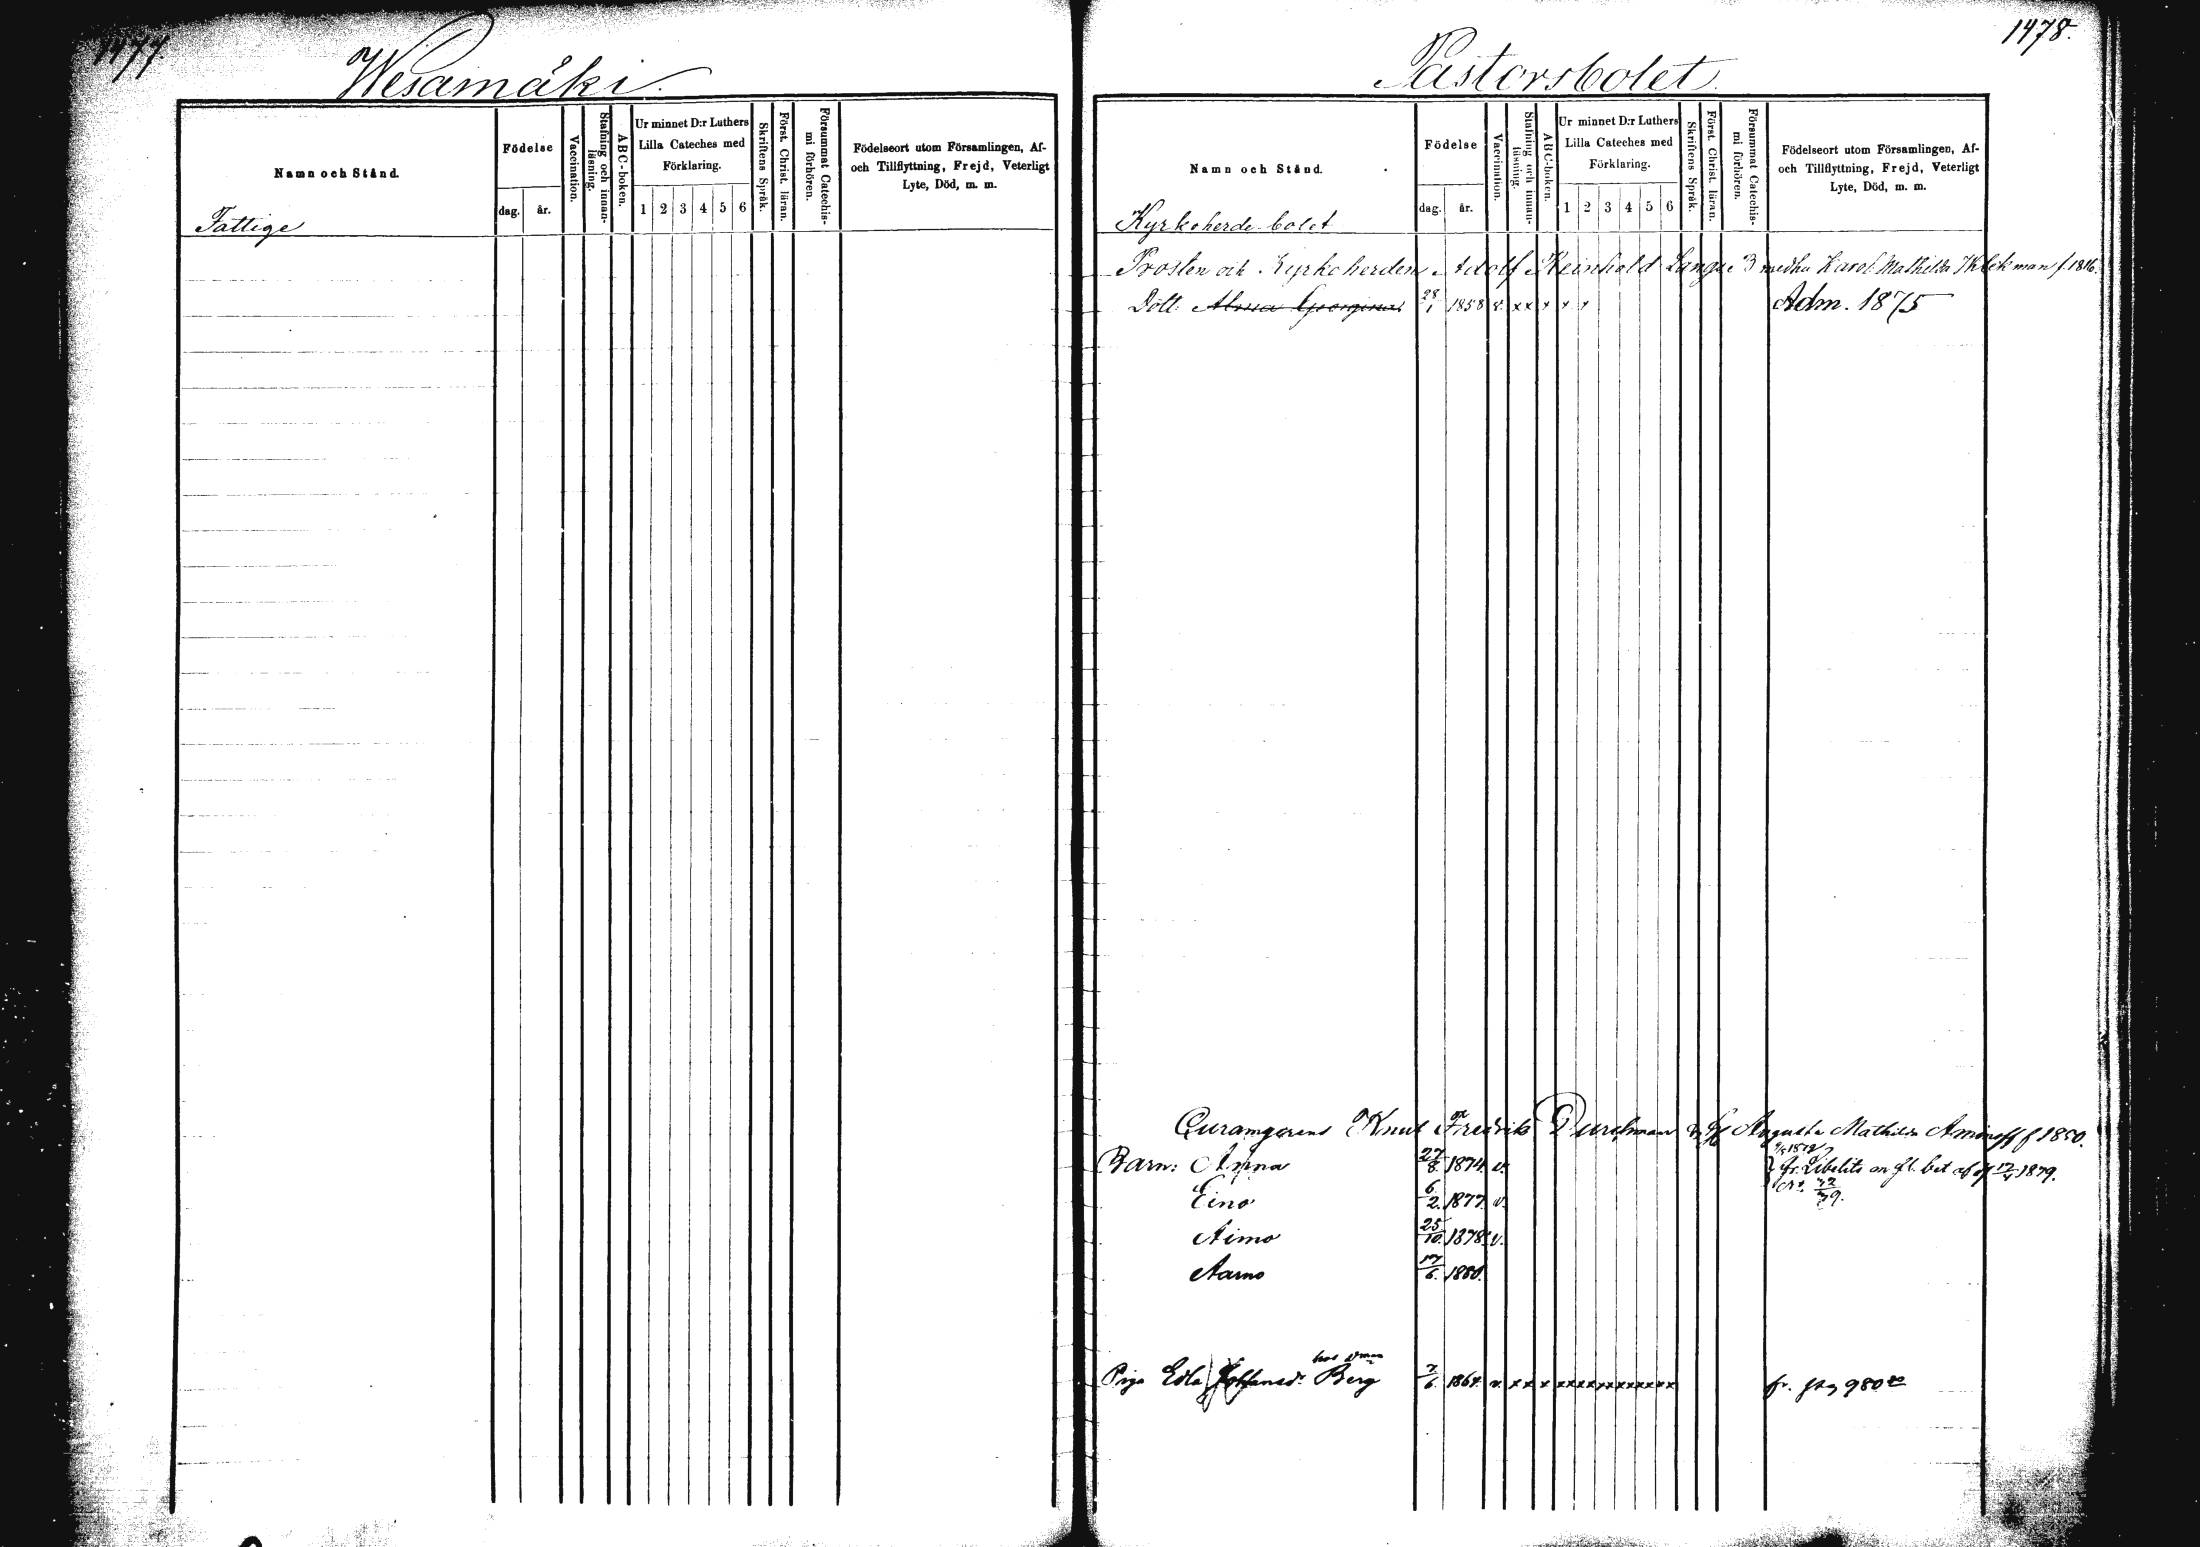 1477.
Wesamäki.
Namn och Stånd.
Födelse
dag.
år.
Vaccination.
Stafning och innan-
läsning.
ABC-boken.
Ur minnet D:r Luthers
Lilla Cateches med
Förklaring.
1 2 3 4 5 6
Skriftens Språk.
Först. Christ. läran.
Försummat Catechis-
mi förhören.
Födelseort utom Församlingen, Af-
och Tillflyttning, Frejd, Veterligt
Lyte, Död, m. m.
Fattige
1478.
Pastorsbolet.
Namn och Stånd.
Födelse
dag.
år.
Vaccination.
Stafning och innan-
läsning.
ABC-boken.
Ur minnet D:r Luthers
Lilla Cateches med
Förklaring.
1 2 3 4 5 6
Skriftens Språk.
Först. Christ. läran.
Försummat Catechis-
mi förhören.
Födelseort utom Församlingen, Af-
och Tillflyttning, Frejd, Veterligt
Lyte, Död, m. m.
Kyrkoherde bolet
Prosten och Kyrkoherden Adolf Reinhold Lange Karol. Mathilda f. 1816.
Dott. Alma Georgina 28/1 1858 v. x x x x x Adm. 1875
Knut Fredrik Durchman Augusta Mathilda Aminoff f 1850.
Barn: Anna 27/8. 1874. v. fr. Libelits 1879.
Eino 6/2. 1877. v.
Aimo 25/10. 1878. v.
Aarno 17/6. 1880.
Piga Edla Johansd. Berg 7/6. 1864. v. x x x x xxxxxxxxxxxx fr. pag 980